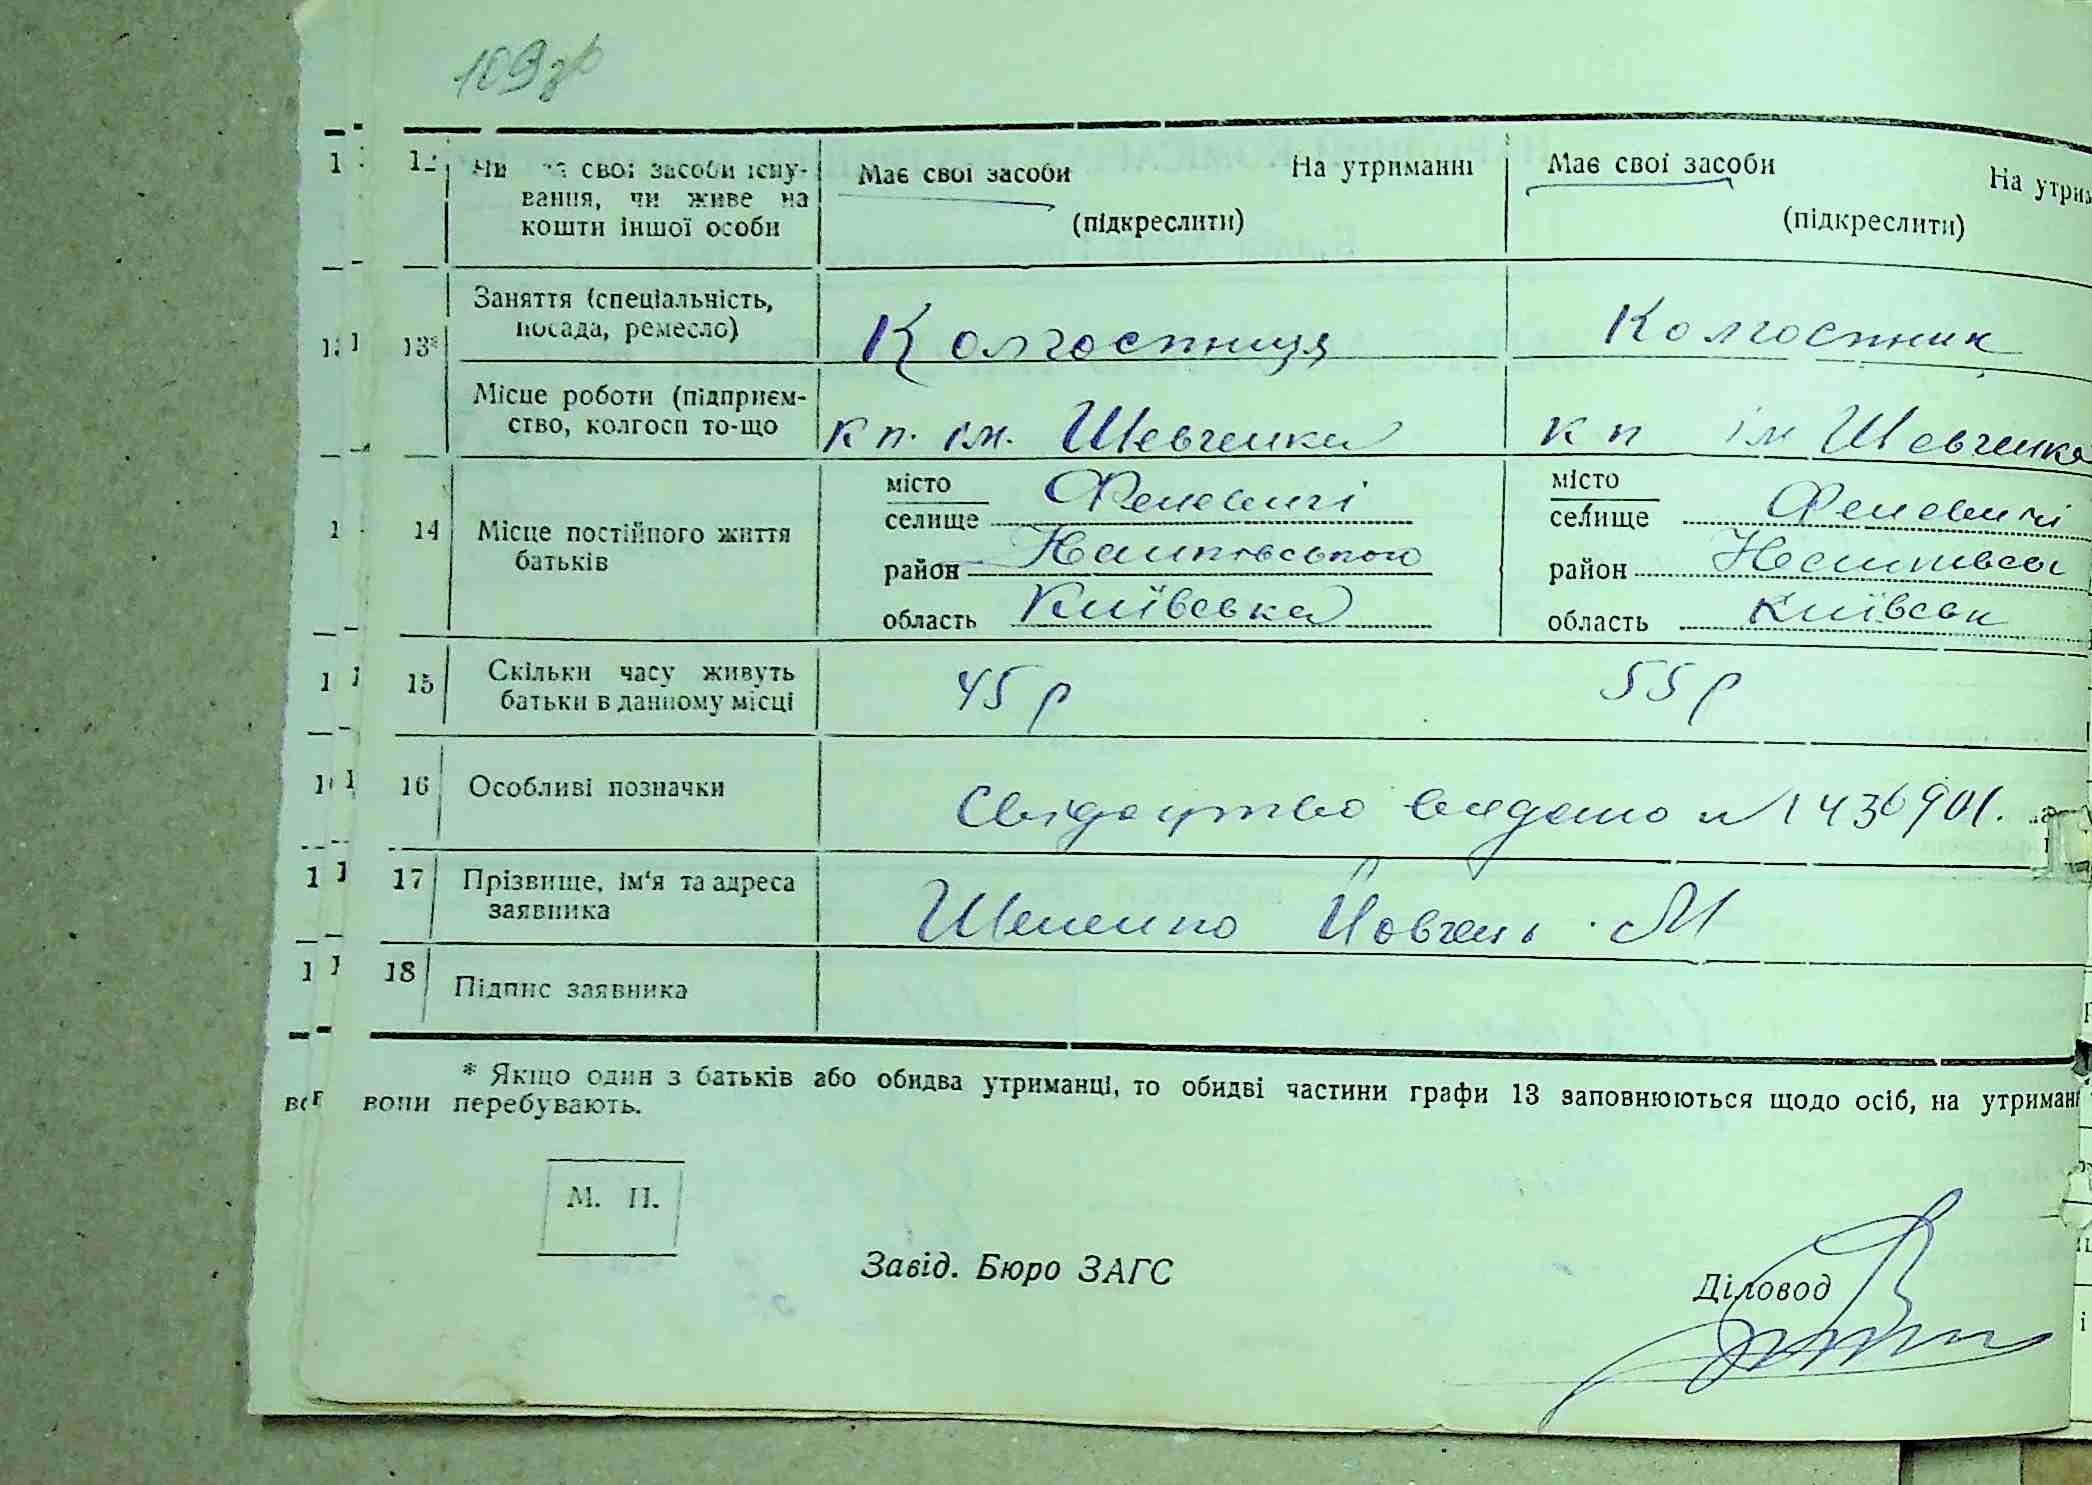 109зв
12 Чи має свої засоби існу- Має свої засоби На утриманні Має свої засоби На утрим
вання, чи живе на
кошти іншої особи (підкреслити) (підкреслити)
13* Заняття (спеціальність,
посада, ремесло) Колгоспниця Колгоспник
Місце роботи (підприєм-
ство, колгосп то-що кп. ім. Шевченка кп ім Шевченка
14 Місце постійного життя
батьків
місто
селище Феневичі
район
область Київська
місто
селище Феневичі
район
область Київськ
15 Скільки часу живуть
батьки в данному місці 45 р 55 р
16 Особливі позначки Свідоцтво видано № 436901.
17 Прізвище, ім'я та адреса
заявника М
18 Підпис заявника
* Якщо один з батьків або обидва утриманці, то обидві частини графи 13 заповнюються щодо осіб, на утриманні
вони перебувають.
М. П.
Завід. Бюро ЗАГС
Діловод